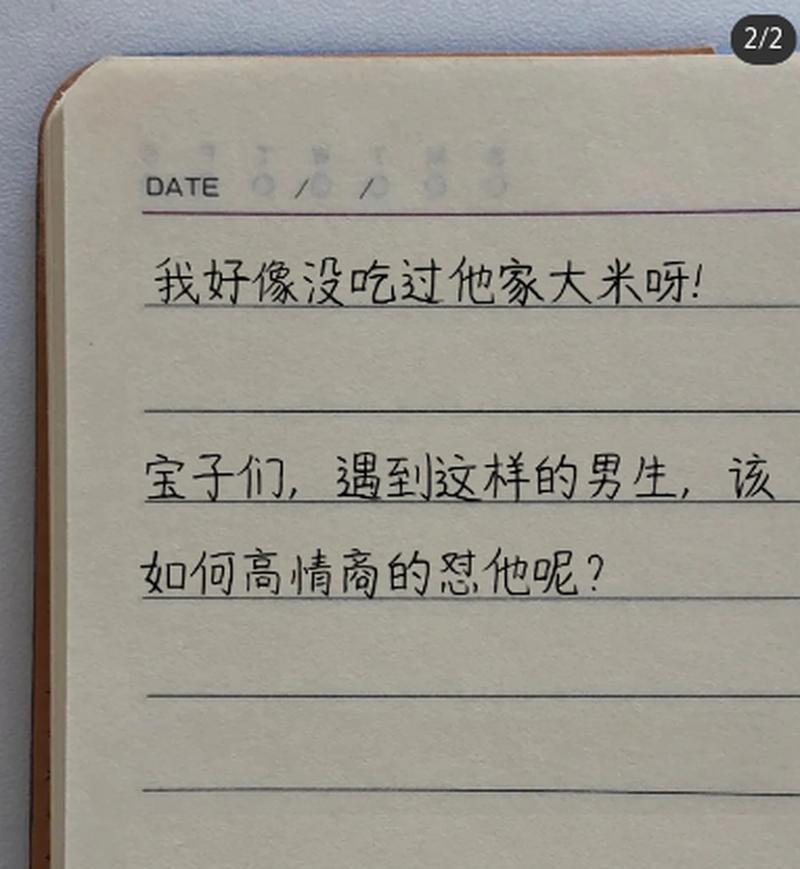 2/2
DATE / /
我好像没吃过他家大米呀!
宝子们, 遇到这样的男生, 该
如何高情商的怼他呢?